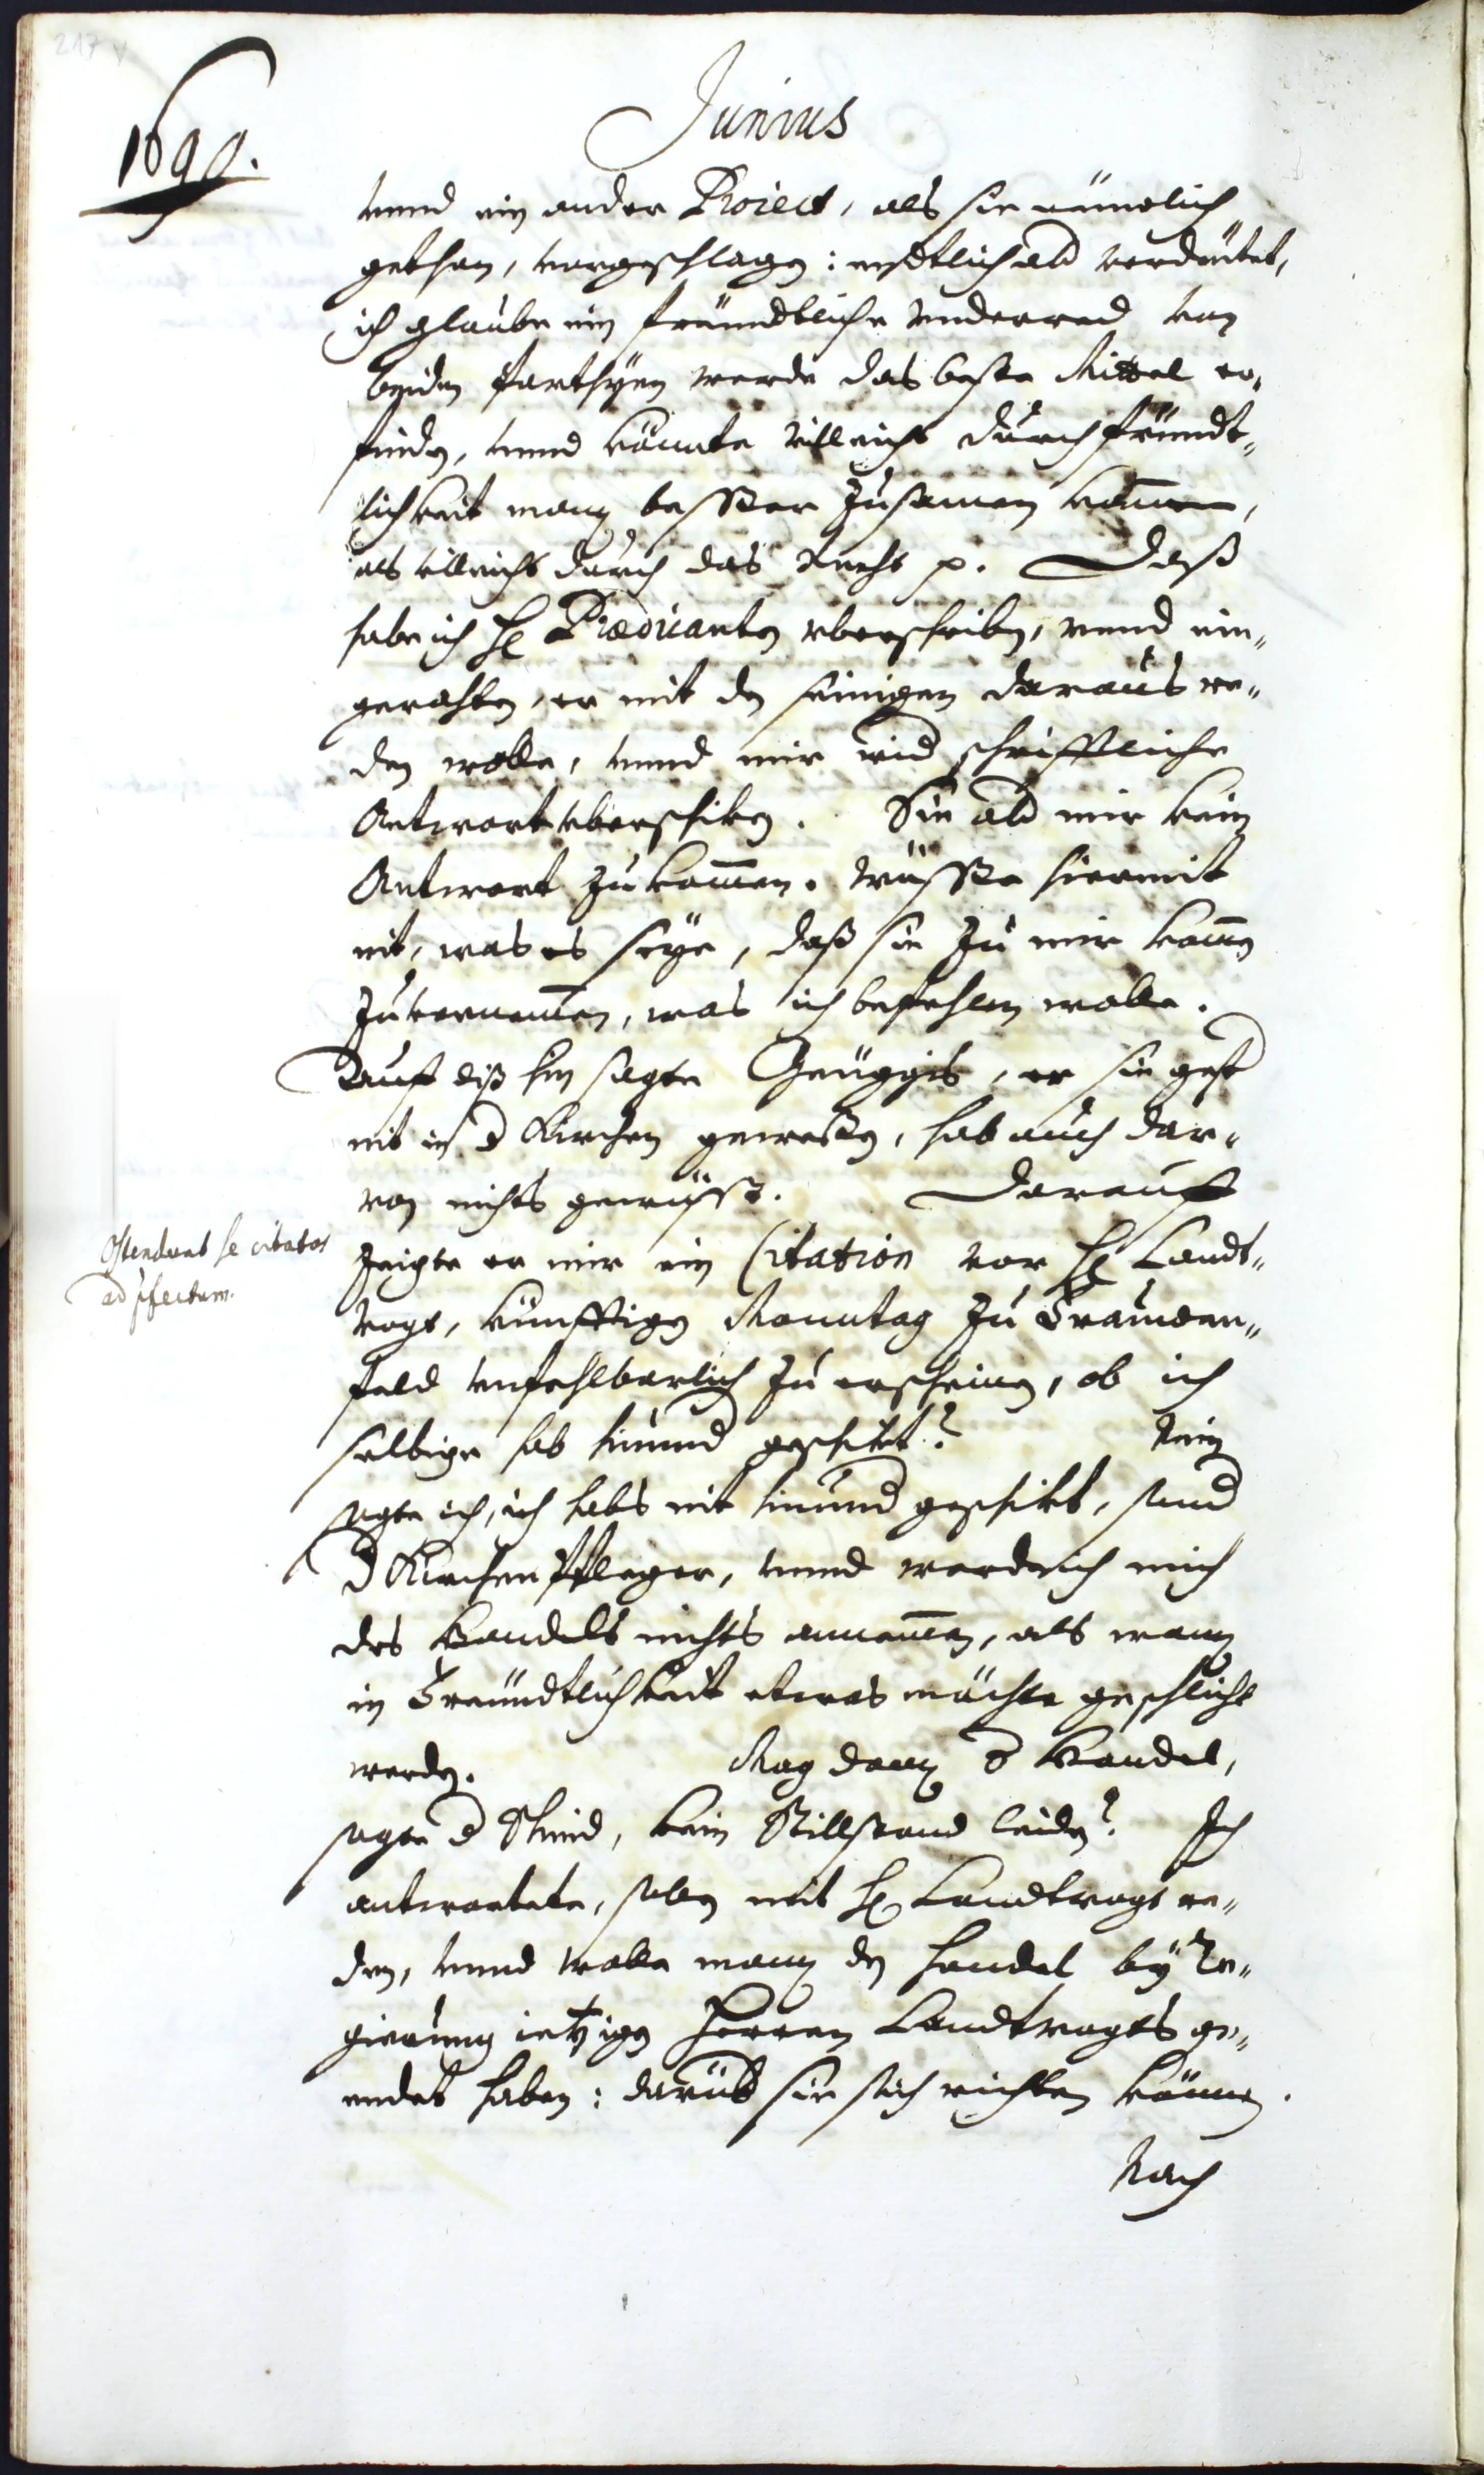 217 v
1690.
Junius
vnnd ein ander Proiect, als sie nämlich
gethan, vorgeschlagen: endtlich ald verdeütet,
ich glaube ein freündtliche vnderred von
beiden Parthyen werde das beste Mittel er„
finden, vnnd könnte villeicht durch fründt„
lichkeit man besser zusamen kommen,
als villeicht durch das Recht p. Daß
habe ich H. Prædicanten vberschriben, vnnd ein„
gerahten, er mit den seinigen daraus re„
den wolle, vnnd mir wid schrifftliche
Antwort vberschiken. Sie ald mir kein
Antwort zukommen. Wüsste hiermit
nit, was es seye, daß sie zu mir kommen
zuvernemmen, was ich befehlen wolle.
Auff diß hin sagte Gnüggis, er sie gest
nit in d Kirchen gewesen, hab auch dar„
von nichts gewüsst. Darauff
Ostendunt se citatos
ad pfectum.
zeigte er mir ein Citation vor H. Landt„
vogt, künfftigen Monntag zu Frauwen„
feld vnfehlbarlich zu erscheinen, ob ich
selbige hab hinund geschikt? Nein
sagte ich, ich habs nit hinund geschikt, sond
d Kirchenpfleger, vnnd werde ich mich
des Handels nichts annemmen, als wann
in Freündtlichkeit etwas möchte geschlicht
werden. Mag dann d Handel,
sagte d Schmid, kein Stillstand leiden? Ich
antwortete, sollen mit H. Landtvogt re„
den, vnnd wolle man den Handel by Re„
gierung ietzigen Herren Landtvogts ge„
endet haben: darüb sie sich richten können.
Nach